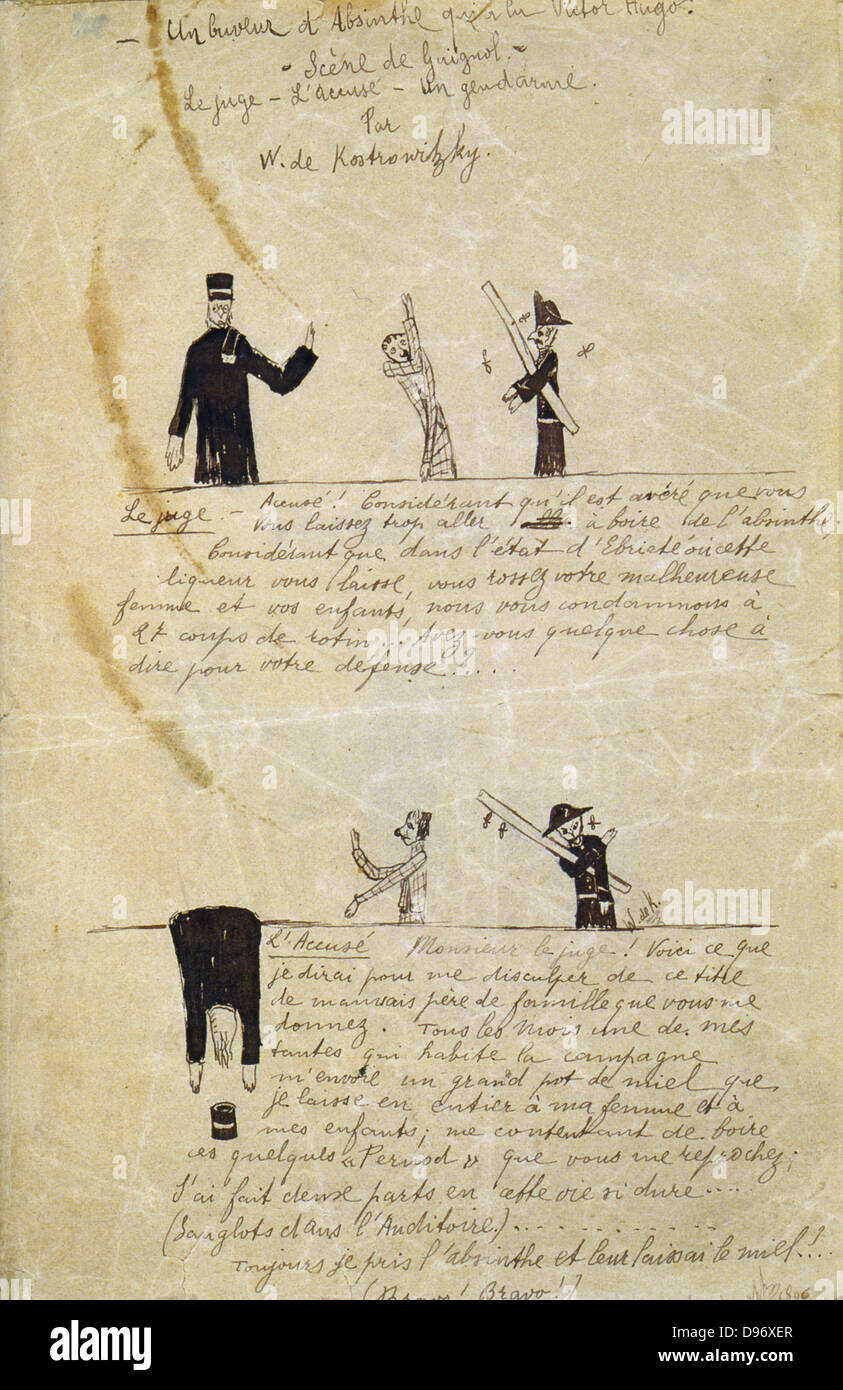 — Un buveur d'Absinthe qui a lu Victor Hugo.
- Scène de Guignol. -
Le juge - L'Accusé - Un gendarme.
Par
W. de Kostrowitzky.
Le juge - Accusé! Considérant qu'il est avéré que vous
vous laissez trop aller à boire de l'absinthe.
Considérant que dans l'état d'Ebrieté où cette
liqueur vous laisse, vous rossez votre malheureuse
femme et vos enfants, nous vous condamnons à
27 coups de rotin... Avez-vous quelque chose à
dire pour votre défense?....
W. de K.
L'Accusé Monsieur le juge! Voici ce que
je dirai pour me disculper de ce titre
de mauvais père de famille que vous me
donnez. Tous les mois une de mes
tantes qui habite la campagne
m'envoie un grand pot de miel que
je laisse en entier à ma femme et à
mes enfants; me contentant de boire
ces quelques « Pernod » que vous me reprochez;
J'ai fait deux parts en cette vie si dure....
(Sanglots dans l'Auditoire.)..........
Toujours je pris l'absinthe et leur laissai le miel!..
(Bravo! Bravo!)
alamy
alamy stock photo
D96XER
www.alamy.com